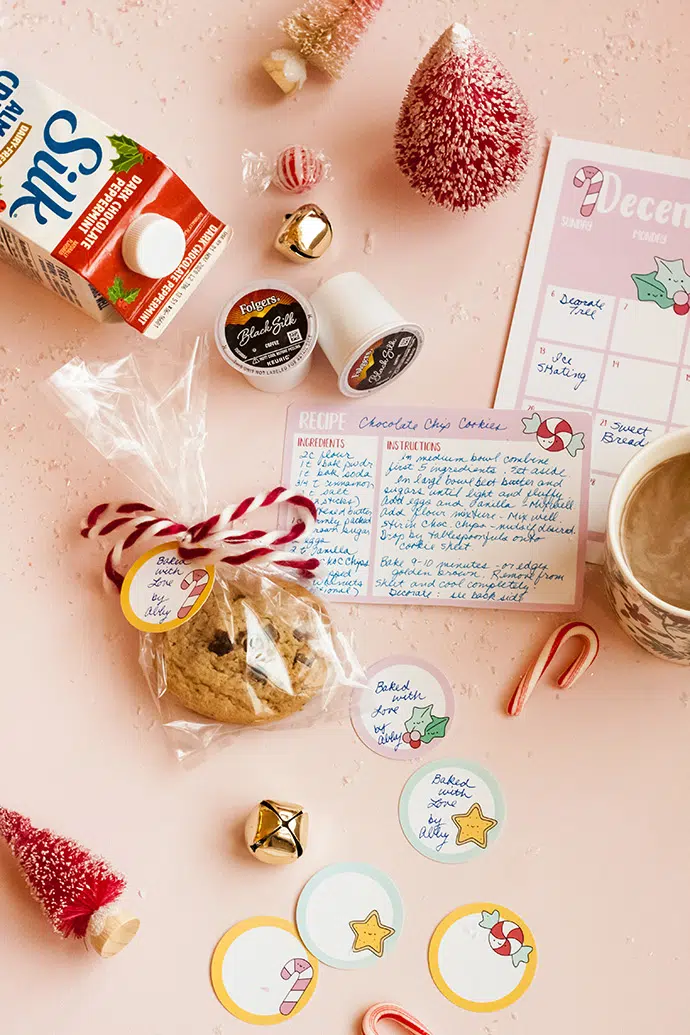 Silk
DAIRY-FREE
ALM
DARK CHOCOLATE
PEPPERMINT
DARK CHOCOLATE PEPPERMINT
Decem
SUNDAY
MONDAY
6
Decorate
Tree
7
13
Ice
Skating
20
21
Sweet
Bread
Folgers
Black Silk
COFFEE
KEURIG
Folgers
Black Silk
RECIPE Chocolate Chip Cookies
INGREDIENTS
2c flour
1t bak pwdr
1t bak soda
3/4 t cinnamon
t salt
sticks)
butter
packed
brown sugar
eggs
t vanilla
choc chips
INSTRUCTIONS
In medium bowl combine
first 5 ingredients. Set aside
In large bowl beat butter and
sugars until light and fluffy
Add eggs and vanilla - Mix well
Add flour mixture - Mix well.
Stir in choc. chips - nuts if desired.
Drop by tablespoonfuls onto
cookie sheet
Bake 9-10 minutes - or edges
golden brown. Remove from
sheet and cool completely
Decorate: see back side
Baked
with
Love
by
Abby
Baked
with
Love
by
Abby
Baked
with
Love
by
Abby